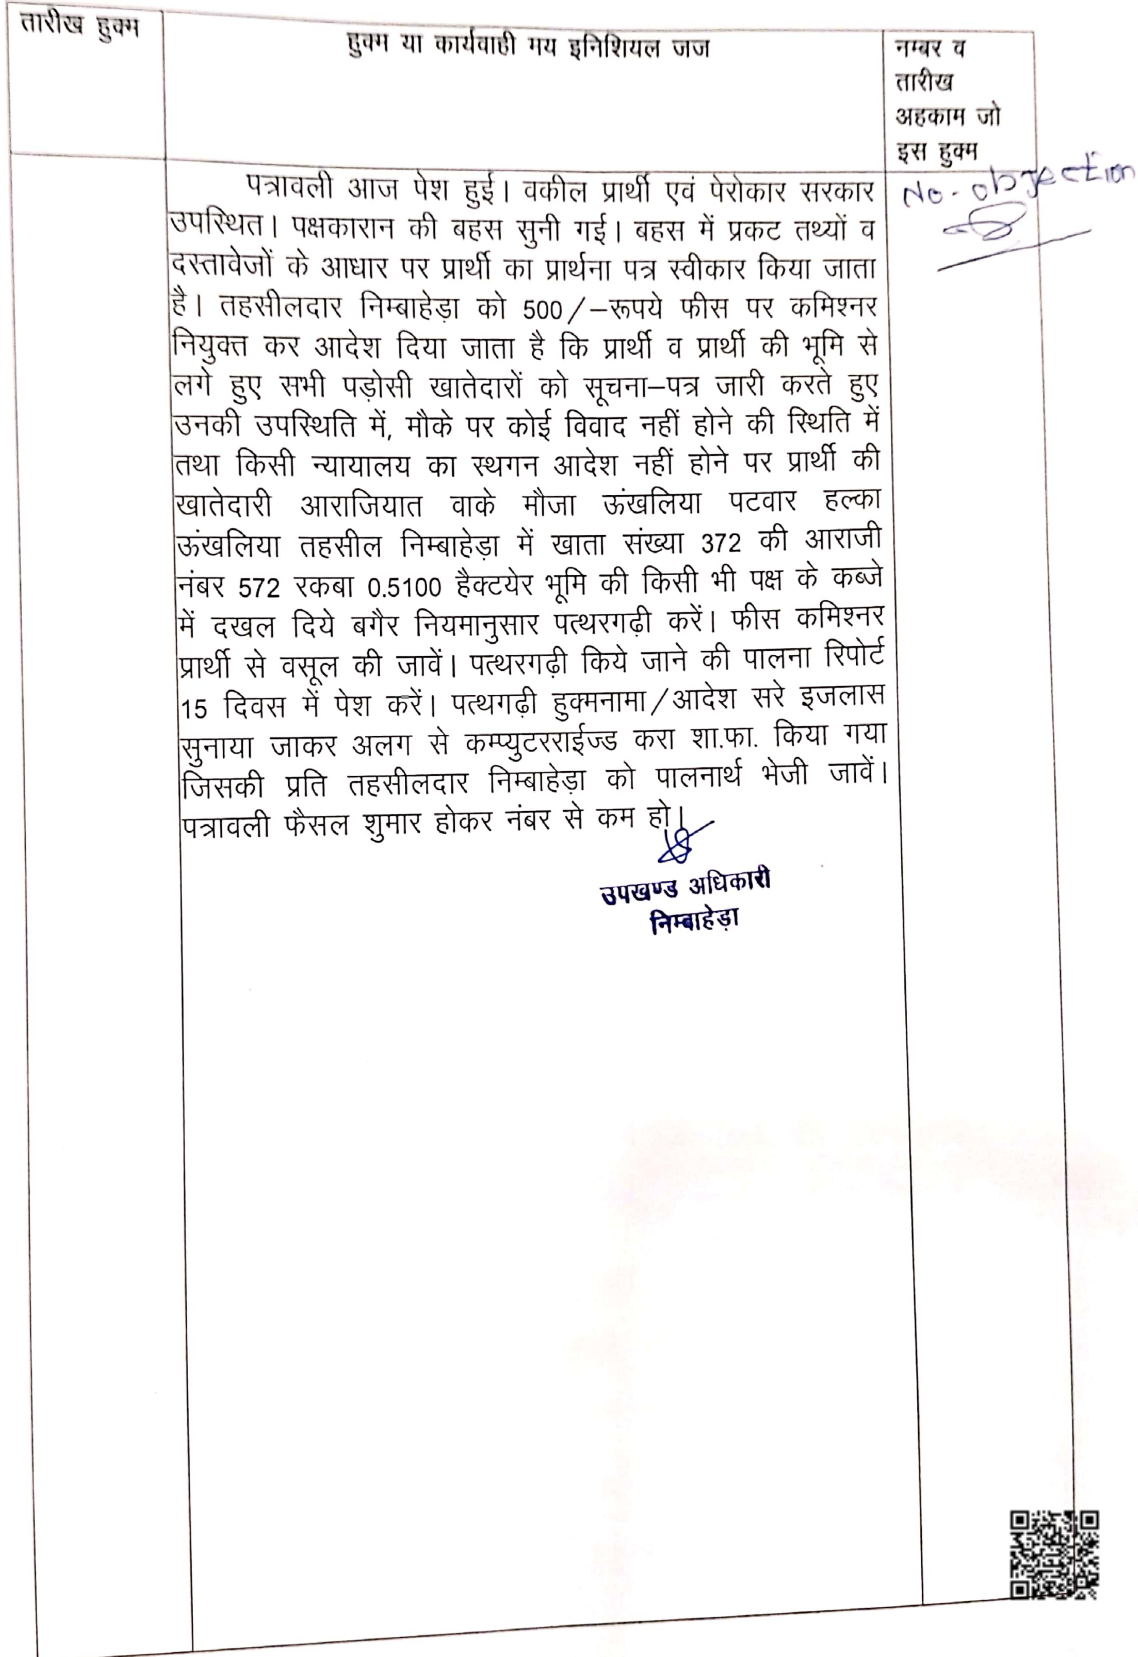 तारीख हुक्म
हुक्म या कार्यवाही मय इनिशियल जज
नम्बर व
तारीख
अहकाम जो
इस हुक्म
No. objection
पत्रावली आज पेश हुई। वकील प्रार्थी एवं पेरोकार सरकार
उपस्थित। पक्षकारान की बहस सुनी गई। बहस में प्रकट तथ्यों व
दस्तावेजों के आधार पर प्रार्थी का प्रार्थना पत्र स्वीकार किया जाता
है। तहसीलदार निम्बाहेड़ा को 500/–रूपये फीस पर कमिश्नर
नियुक्त कर आदेश दिया जाता है कि प्रार्थी व प्रार्थी की भूमि से
लगे हुए सभी पड़ोसी खातेदारों को सूचना–पत्र जारी करते हुए
उनकी उपस्थिति में, मौके पर कोई विवाद नहीं होने की स्थिति में
तथा किसी न्यायालय का स्थगन आदेश नहीं होने पर प्रार्थी की
खातेदारी आराजियात वाके मौजा ऊंखलिया पटवार हल्का
ऊंखलिया तहसील निम्बाहेड़ा में खाता संख्या 372 की आराजी
नंबर 572 रकबा 0.5100 हैक्टयेर भूमि की किसी भी पक्ष के कब्जे
में दखल दिये बगैर नियमानुसार पत्थरगढ़ी करें। फीस कमिश्नर
प्रार्थी से वसूल की जावें। पत्थरगढ़ी किये जाने की पालना रिपोर्ट
15 दिवस में पेश करें। पत्थगढ़ी हुक्मनामा/आदेश सरे इजलास
सुनाया जाकर अलग से कम्प्युटरराईज्ड करा शा.फा. किया गया
जिसकी प्रति तहसीलदार निम्बाहेड़ा को पालनार्थ भेजी जावें।
पत्रावली फैसल शुमार होकर नंबर से कम हो।
उपखण्ड अधिकारी
निम्बाहेड़ा